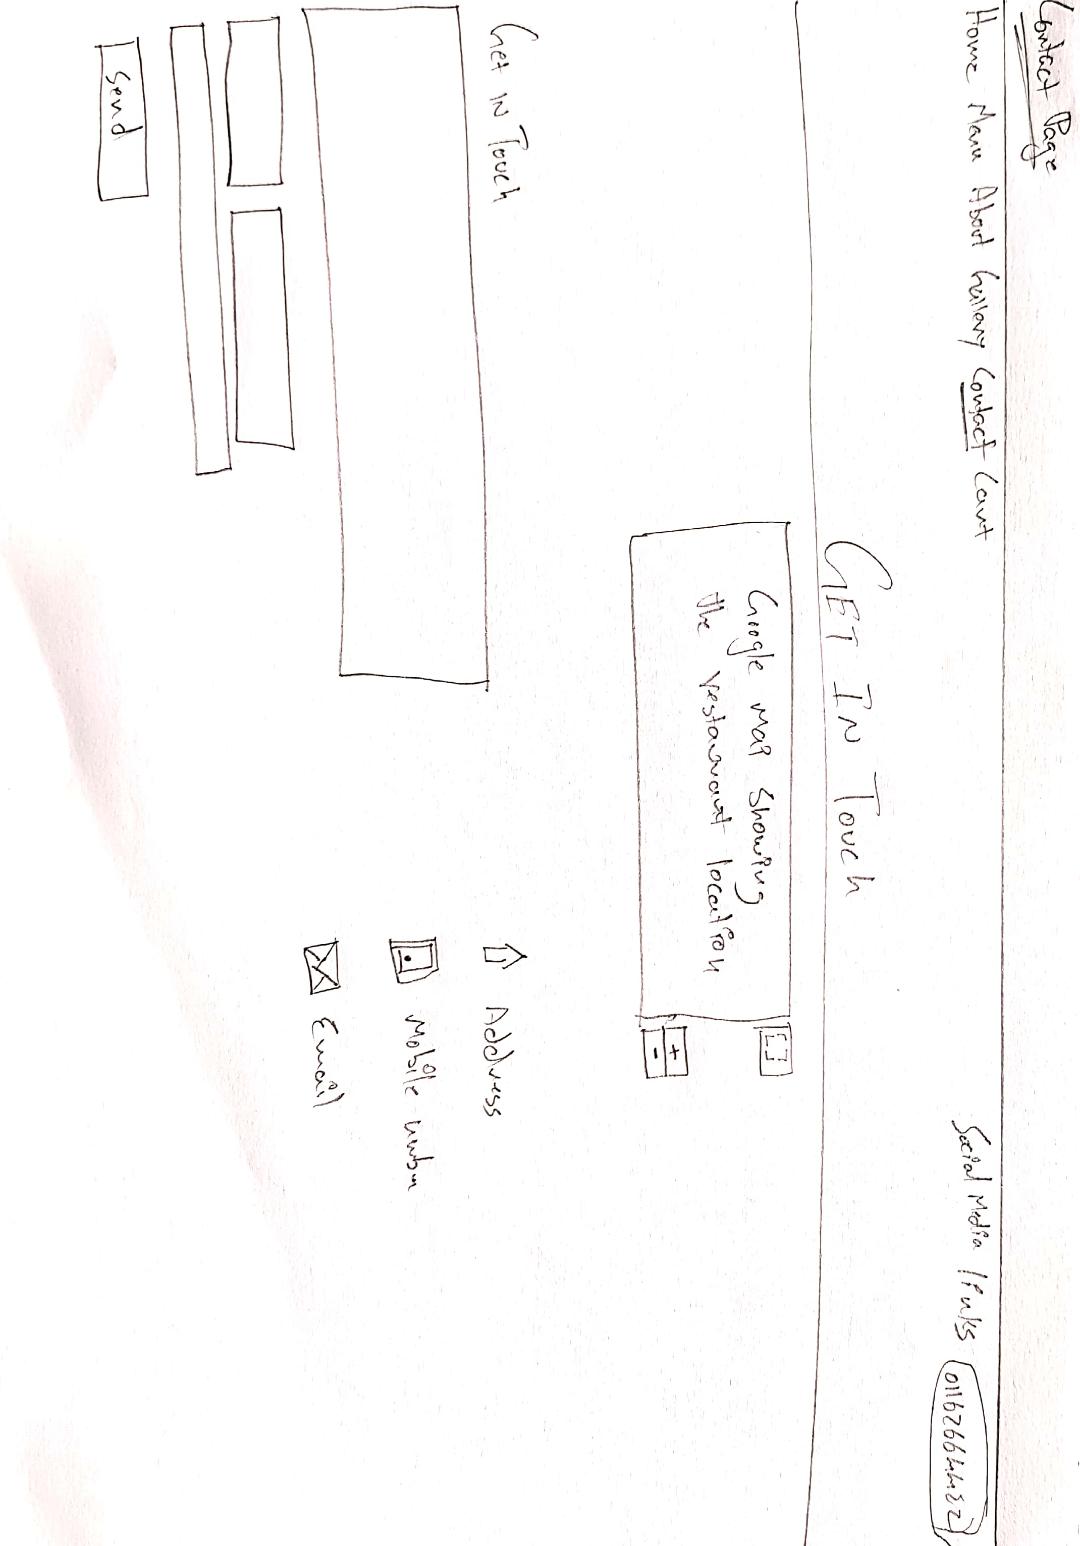 Contact Page
Home Menu About Gallery Contact Cart
Social Media links
GET IN Touch
Google Map Showing
the restaurant location
Get IN Touch
Address
Mobile
Email
Send
+
-